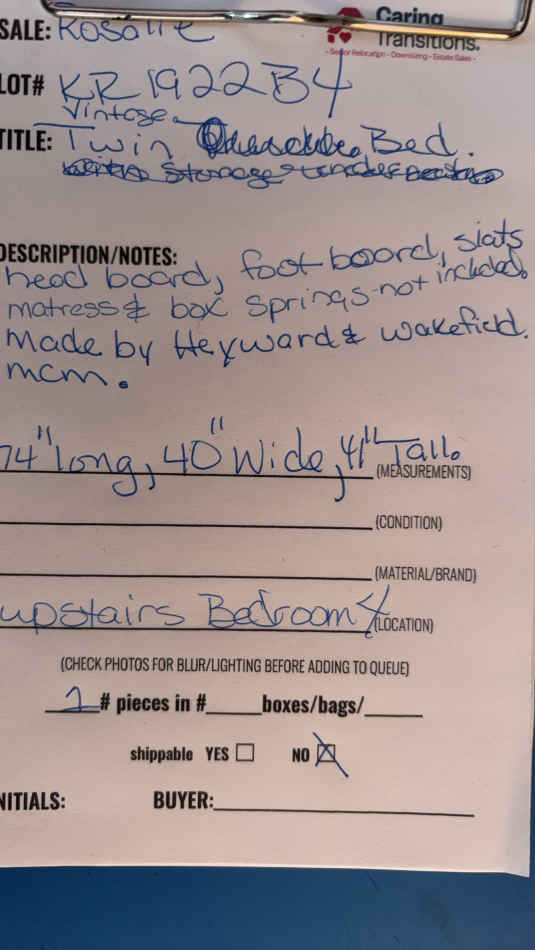 SALE: Rosalie
Caring
Transitions.
- Senior Relocation - Downsizing - Estate Sales -
LOT# KR1922B4
Vintage
TITLE: Twin Bed.
DESCRIPTION/NOTES:
head board, foot board, slats
matress & box springs not included.
Made by Heyward & Wakefield.
mcm.
74" long, 40" Wide, 41" Tall.
(MEASUREMENTS)
(CONDITION)
(MATERIAL/BRAND)
upstairs Bedroom 4 (LOCATION)
(CHECK PHOTOS FOR BLUR/LIGHTING BEFORE ADDING TO QUEUE)
1 # pieces in #____boxes/bags/____
shippable YES ☐ NO ☒
NITIALS: BUYER: